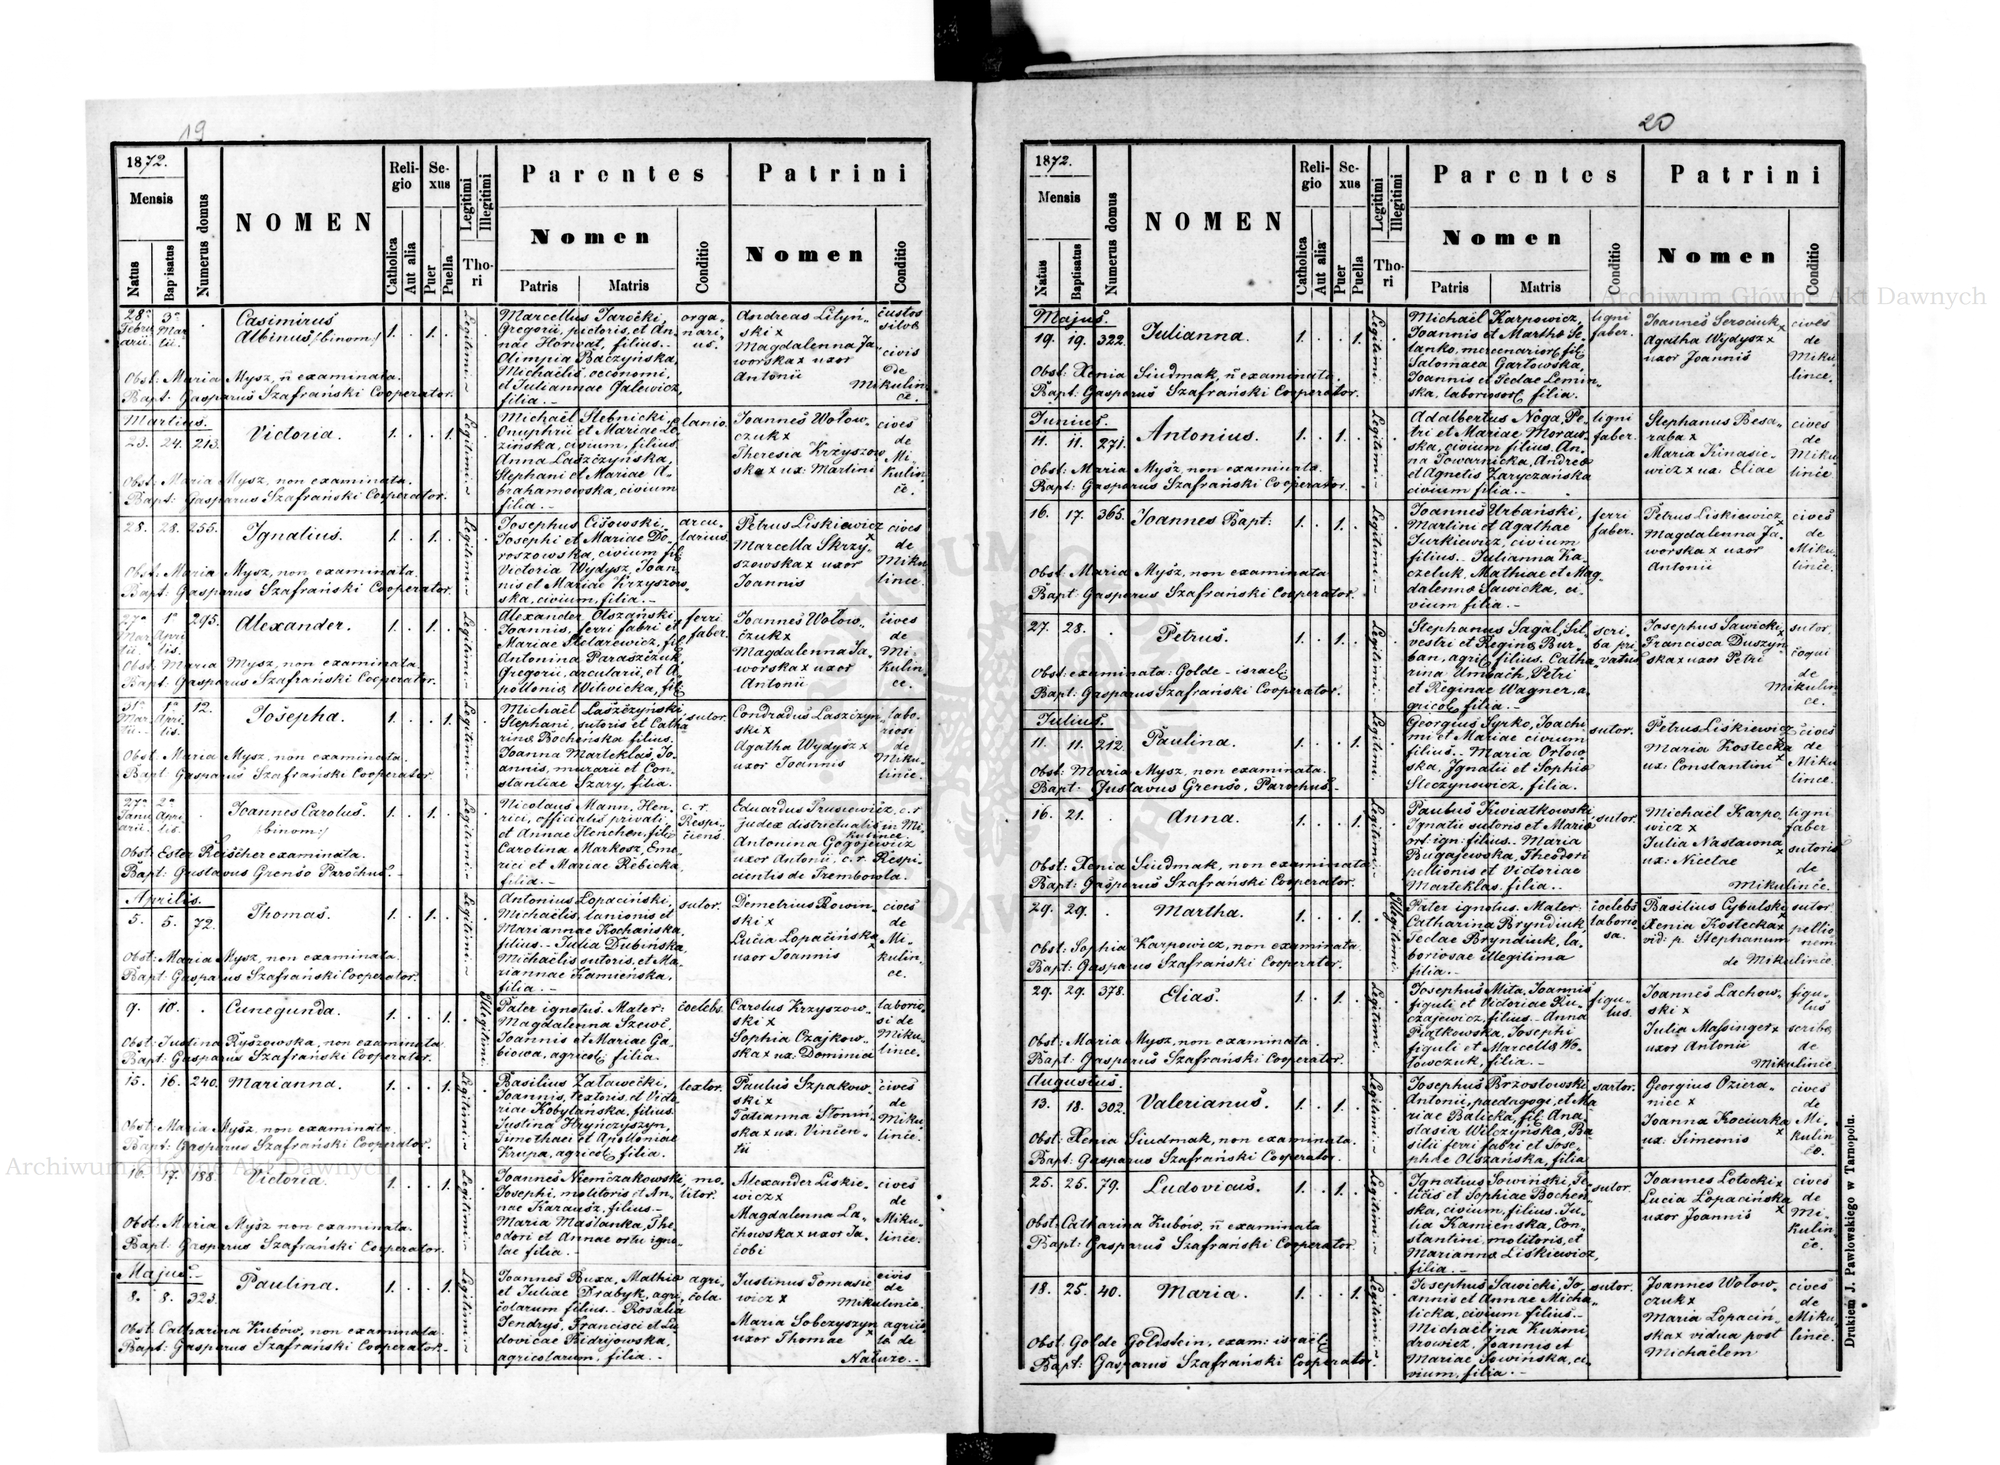 19
1872.
Mensis
Natus
Baptisatus
Numerus domus
NOMEN
Religio
Catholica
Aut alia
Sexus
Puer
Puella
Legitimi
Illegitimi
Thori
Parentes
Nomen
Patris
Matris
Conditio
Patrini
Nomen
Conditio
28ª Februarii. 3ª Martii. . Casimirus
Albinus /:binom:/
1. . 1. . Legitimi.~
Marcellus Jarocki,
Gregorii, pictoris, et An-
nae Horwat, filius.-
Olimpia Baczyńska,
Michaëlis, oeconomi,
et Juliannae Galewicz,
filia.-
orga-
nari-
us.
Andreas Lityń-
ski x
Magdalenna Ja-
worska x uxor
Antonii
custos
silvae
civis
de
Mikulin-
ce.
Obst: Maria Mysz, ñ examinata.
Bapt: Gasparus Szafrański Cooperator.
Martius.
23. 24. 213. Victoria. 1. . . 1. Legitimi.~
Michaël Stebnicki,
Onuphrii et Mariae Le-
zińska, civium, filius.
Anna Laszczyńska,
Stephani et Mariae A-
brahamowska, civium
filia.-
lanio.
Joannes Wołow-
czuk x
Theresia Krzyszow-
ska x ux: Martini
cives
de
Mi-
kulin-
ce.
Obst: Maria Mysz, non examinata.
Bapt: Gasparus Szafrański Cooperator.
28. 28. 255. Ignatius. 1. . 1. . Legitimi.~
Josephus Cisowski,
Josephi et Mariae Do-
roszowska, civium fil:
Victoria Wydysz, Joan-
nis et Mariae Krzyszow-
ska, civium, filia.-
arcu-
larius.
Petrus Liskiewicz x
Marcella Skrzy-
szowska x uxor
Joannis
cives
de
Miku-
lince.
Obst: Maria Mysz, non examinata.
Bapt: Gasparus Szafrański Cooperator.
27ª Martii. 1ª Aprilis. 295. Alexander. 1. . 1. . Legitimi.~
Alexander Olszański,
Joannis, ferri fabri et
Mariae Stelarewicz, fil:
Antonina Paraszczuk,
Gregorii, arcularii, et A-
pollonis, Witwicka, fil:
ferri
faber.
Joannes Wołow-
czuk x
Magdalenna Ja-
worska x uxor
Antonii
cives
de
Mi-
kulin-
ce.
Obst: Maria Mysz, non examinata.
Bapt: Gasparus Szafrański Cooperator.
31ª Martii. 1ª Aprilis. 12. Josepha. 1. . . 1. Legitimi.~
Michaël Laszczyński,
Stephani, sutoris et Catha-
rinae Bocheńska filius.
Joanna Marteklas, Jo-
annis, murarii et Con-
stantiae Szary, filia.
sutor.
Condradus Laszczyn-
ski x
Agatha Wydysz x
uxor Joannis
labo-
riosi
de
Miku-
lince.
Obst: Maria Mysz, non examinata.
Bapt: Gasparus Szafrański Cooperator.
27ª Januarii. 2ª Aprilis. . Joannes Carolus.
/:binom:/
1. . 1. . Legitimi.~
Nicolaus Mann, Hen-
rici, officialis privati,
et Annae Henchen, filius
Carolina Markesz, Eme-
rici et Mariae Rebicka,
filia.-
c. r.
Respi-
ciens.
Eduardus Trusiewicz, c. r.
judex districtualis in Mi-
kulince.
Antonina Gogojewicz
uxor Antonii, c. r. Respi-
cientis de Trembowla.
Obst: Ester Reischer examinata.
Bapt: Gustavus Grenso Parochus.-
Aprilis.
5. 5. 72. Thomas. 1. . 1. . Legitimi.~
Antonius Łopaciński,
Michaëlis, lanionis et
Mariannae Kochańska,
filius.- Julia Dubińska,
Michaëlis sutoris, et Ma-
riannae Kamieńska,
filia.-
sutor.
Demetrius Rowin-
ski x
Lucia Łopacińska x
uxor Joannis
cives
de
Mi-
kulin-
ce.
Obst: Maria Mysz, non examinata.
Bapt: Gasparus Szafrański Cooperator.
9. 10. . Cunegunda. 1. . . 1. Illegitimi.
Pater ignotus. Mater:
Magdalenna Szewc,
Joannis et Mariae Ga-
biowa, agricol: filia.
coelebs.
Carolus Krzyszow-
ski x
Sophia Czajkow-
ska x ux: Dominici
laborio-
si de
Miku-
lince.
Obst: Justina Ryszowska, non examinata.
Bapt: Gasparus Szafrański Cooperator.
15. 16. 240. Marianna. 1. . . 1. Legitimi.~
Basilius Załawecki,
Joannis, textoris et Victo-
riae Kobylańska, filius.
Justina Hryńczyszyn,
Timothaei et Apolloniae
Krupa, agricol: filia.
textor.
Paulus Szpakow-
ski x
Tatianna Słonin-
ska x ux: Vincen-
tii
cives
de
Miku-
lince.
Obst: Maria Mysz, non examinata.
Bapt: Gasparus Szafrański Cooperator.
16. 17. 188. Victoria. 1. . . 1. Legitimi.~
Joannes Niemczakowski,
Josephi, molitoris et An-
nae Karausz, filius.-
Maria Maślanka, The-
odori et Annae ortu igno-
tae filia.-
mo-
litor.
Alexander Liskie-
wicz x
Magdalenna La-
chowska x uxor Ja-
cobi
cives
de
Miku-
lince.
Obst: Maria Mysz non examinata.
Bapt: Gasparus Szafrański Cooperator.
Majus.
8. 8. 323. Paulina. 1. . . 1. Legitimi.~
Joannes Buxa, Mathiae
et Juliae Drabyk, agri-
colarum filius.- Rosalia
Jendrys, Francisci et Lu-
dovicae Ridryjowska,
agricolarum, filia.-
agri-
cola.
Justinus Tomasie-
wicz x
Maria Sobczyszyn x
uxor Thomae
civis
de
Mikulince.
agrico-
la de
Naluze.-
Obst: Catharina Kubów, non examinata.
Bapt: Gasparus Szafrański Cooperator.-
20
1872.
Mensis
Natus
Baptisatus
Numerus domus
NOMEN
Religio
Catholica
Aut alia
Sexus
Puer
Puella
Legitimi
Illegitimi
Thori
Parentes
Nomen
Patris
Matris
Conditio
Patrini
Nomen
Conditio
Majus.
19. 19. 322. Julianna. 1. . . 1. Legitimi.~
Michaël Karpowicz,
Joannis et Marthae Se-
lanko, mercenarior: fil:
Salomaea Garłowska,
Joannis et Teclae Lemin-
ska, laboriosor: filia.
ligni
faber.
Joannes Serociuk x
Agatha Wydysz x
uxor Joannis
cives
de
Miku-
lince.
Obst: Xenia Siudmak, ñ examinata.
Bapt: Gasparus Szafrański Cooperator.
Junius.
11. 11. 271. Antonius. 1. . 1. . Legitimi.~
Adalbertus Noga, Pe-
tri et Mariae Moraw-
ska, civium filius. An-
na Towarnicka, Andreae
et Agnetis Zaryczańska
civium filia.-
ligni
faber.
Stephanus Besa-
raba x
Maria Kinasie-
wicz x ux: Eliae
cives
de
Miku-
lince.
Obst: Maria Mysz, non examinata.
Bapt: Gasparus Szafrański Cooperator.
16. 17. 365. Joannes Bapt: 1. . 1. . Legitimi.~
Joannes Urbański,
Martini et Agathae
Jurkiewicz, civium
filius.- Julianna Ka-
czeluk, Mathiae et Mag-
dalennae Sawicka, ci-
vium filia.-
ferri
faber.
Petrus Liskiewicz x
Magdalenna Ja-
worska x uxor
Antonii
cives
de
Miku-
lince.
Obst: Maria Mysz, non examinata.
Bapt: Gasparus Szafrański Cooperator.
27. 28. . Petrus. 1. . 1. . Legitimi.~
Stephanus Sagal, Sil-
vestri et Reginae Bur-
ban, agric: filius. Catha-
rina Umbach, Petri
et Reginae Wagner, a-
gricol: filia.-
scri-
ba pri-
vatus.
Josephus Sawicki x
Francisca Duszyn-
ska x uxor Petri
sutor.
coqui
de
Mikulin-
ce.
Obst: examinata: Golde - israel:
Bapt: Gasparus Szafrański Cooperator.
Julius.
11. 11. 212. Paulina. 1. . . 1. Legitimi.
Georgius Syrko, Joachi-
mi et Mariae civium
filius.- Maria Orłow-
ska, Ignatii et Sophiae
Steczynowicz, filia.
sutor.
Petrus Liskiewicz x
Maria Kostecka x
ux: Constantini
cives
de
Miku-
lince.
Obst: Maria Mysz, non examinata.
Bapt: Gustavus Grenso, Parochus.-
16. 21. . Anna. 1. . . 1. Legitimi.~
Paulus Kwiatkowski,
Ignatii sutoris et Mariae
ort: ign: filius. Maria
Bugajewska, Theodori
pellionis et Victoriae
Marteklas, filia.-
sutor.
Michaël Karpo-
wicz x
Julia Nastawna x
ux: Nicetae
ligni
faber
sutoris
de
Mikulince.
Obst: Xenia Siudmak, non examinata.
Bapt: Gasparus Szafrański Cooperator.
29. 29. . Martha. 1. . . 1. Illegitimi.
Pater ignotus. Mater:
Catharina Bryndiuk,
Teclae Bryndiuk, la-
boriosae illegitima
filia.-
coelebs
laborio-
sa.
Basilius Cybulski x
Xenia Kostecka x
vid: p. Stephanum
sutor.
pellio-
nem
de Mikulince.
Obst: Sophia Karpowicz, non examinata.
Bapt: Gasparus Szafrański Cooperator.
29. 29. 378. Elias. 1. . 1. . Legitimi.
Josephus Mita, Joannis
figuli et Victoriae Ku-
czajewicz, filius.- Anna
Piątkowska, Josephi
figuli et Marcellae Wo-
łowczuk, filia.-
figu-
lus.
Joannes Lachow-
ski x
Julia Massinger x
uxor Antonii
figu-
lus
scribae
de
Mikulince.
Obst: Maria Mysz, non examinata.
Bapt: Gasparus Szafrański Cooperator.
Augustus.
13. 18. 302. Valerianus. 1. . 1. . Legitimi.~
Josephus Brzostowski,
Antonii, paedagogi, et Ma-
riae Balicka, fil: Ana-
stasia Wilczyńska, Ba-
silii ferri fabri et Jose-
phae Olszańska, filia
sartor.
Georgius Oziera-
niec x
Joanna Kociurka x
ux: Simeonis
cives
de
Mi-
kulin-
ce.
Obst: Xenia Siudmak, non examinata.
Bapt: Gasparus Szafrański Cooperator.
25. 25. 79. Ludovicus. 1. . 1. . Legitimi.~
Ignatius Sowiński, Fe-
licis et Sophiae Bochen-
ska, civium, filius. Ju-
lia Kamieńska, Con-
stantini molitoris, et
Mariannae Liskiewicz,
filia.-
sutor.
Joannes Letocki x
Lucia Łopacińska x
uxor Joannis
cives
de
Mi-
kulin-
ce.
Obst: Catharina Kubów, ñ examinata
Bapt: Gasparus Szafrański Cooperator.
18. 25. 40. Maria. 1. . . 1. Legitimi.~
Josephus Sawicki, Jo-
annis et Annae Micha-
licka, civium filius.-
Michaëlina Kuzmi-
drowicz, Joannis et
Mariae Sowińska, ci-
vium, filia.-
sutor.
Joannes Wołow-
czuk x
Maria Łopaciń-
ska x vidua post
Michaëlem
cives
de
Miku-
lince.
Obst: Golde Goldstein, exam: israel:
Bapt: Gasparus Szafrański Cooperator.
Drukiem J. Pawłowskiego w Tarnopolu.
Archiwum Główne Akt Dawnych
Archiwum Główne Akt Dawnych
ARCHIWUM GŁÓWNE AKT DAWNYCH